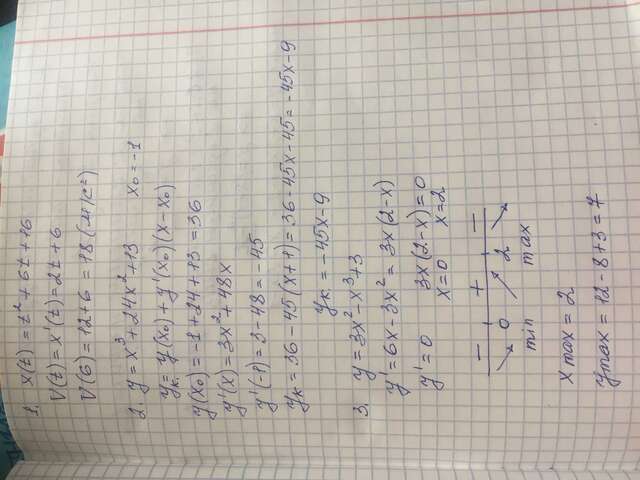 1. x(t) = t² + 6t + 16
V(t) = x'(t) = 2t + 6
V(6) = 12 + 6 = 18 (м/с²)
2. y = x³ + 24x² + 13 x₀ = -1
yк = y(x₀) + y'(x₀)(x - x₀)
y(x₀) = -1 + 24 + 13 = 36
y'(x) = 3x² + 48x
y'(-1) = 3 - 48 = -45
yк = 36 - 45(x + 1) = 36 - 45x - 45 = -45x - 9
yк = -45x - 9
3. y = 3x² - x³ + 3
y' = 6x - 3x² = 3x(2 - x)
y' = 0 3x(2 - x) = 0
x = 0 x = 2
- + -
0 2
min max
xmax = 2
ymax = 12 - 8 + 3 = 7